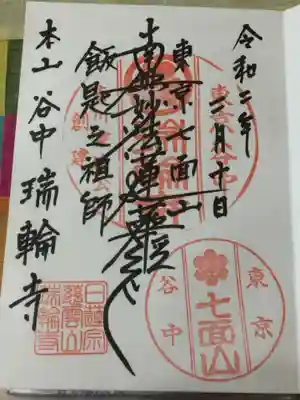 令和二年
二月十日
東京七面山
南無妙法蓮華経
飯匙之祖師
本山 谷中 瑞輪寺
東京谷中
東京
七面山
谷中
日蓮宗
慈雲山
瑞輪寺